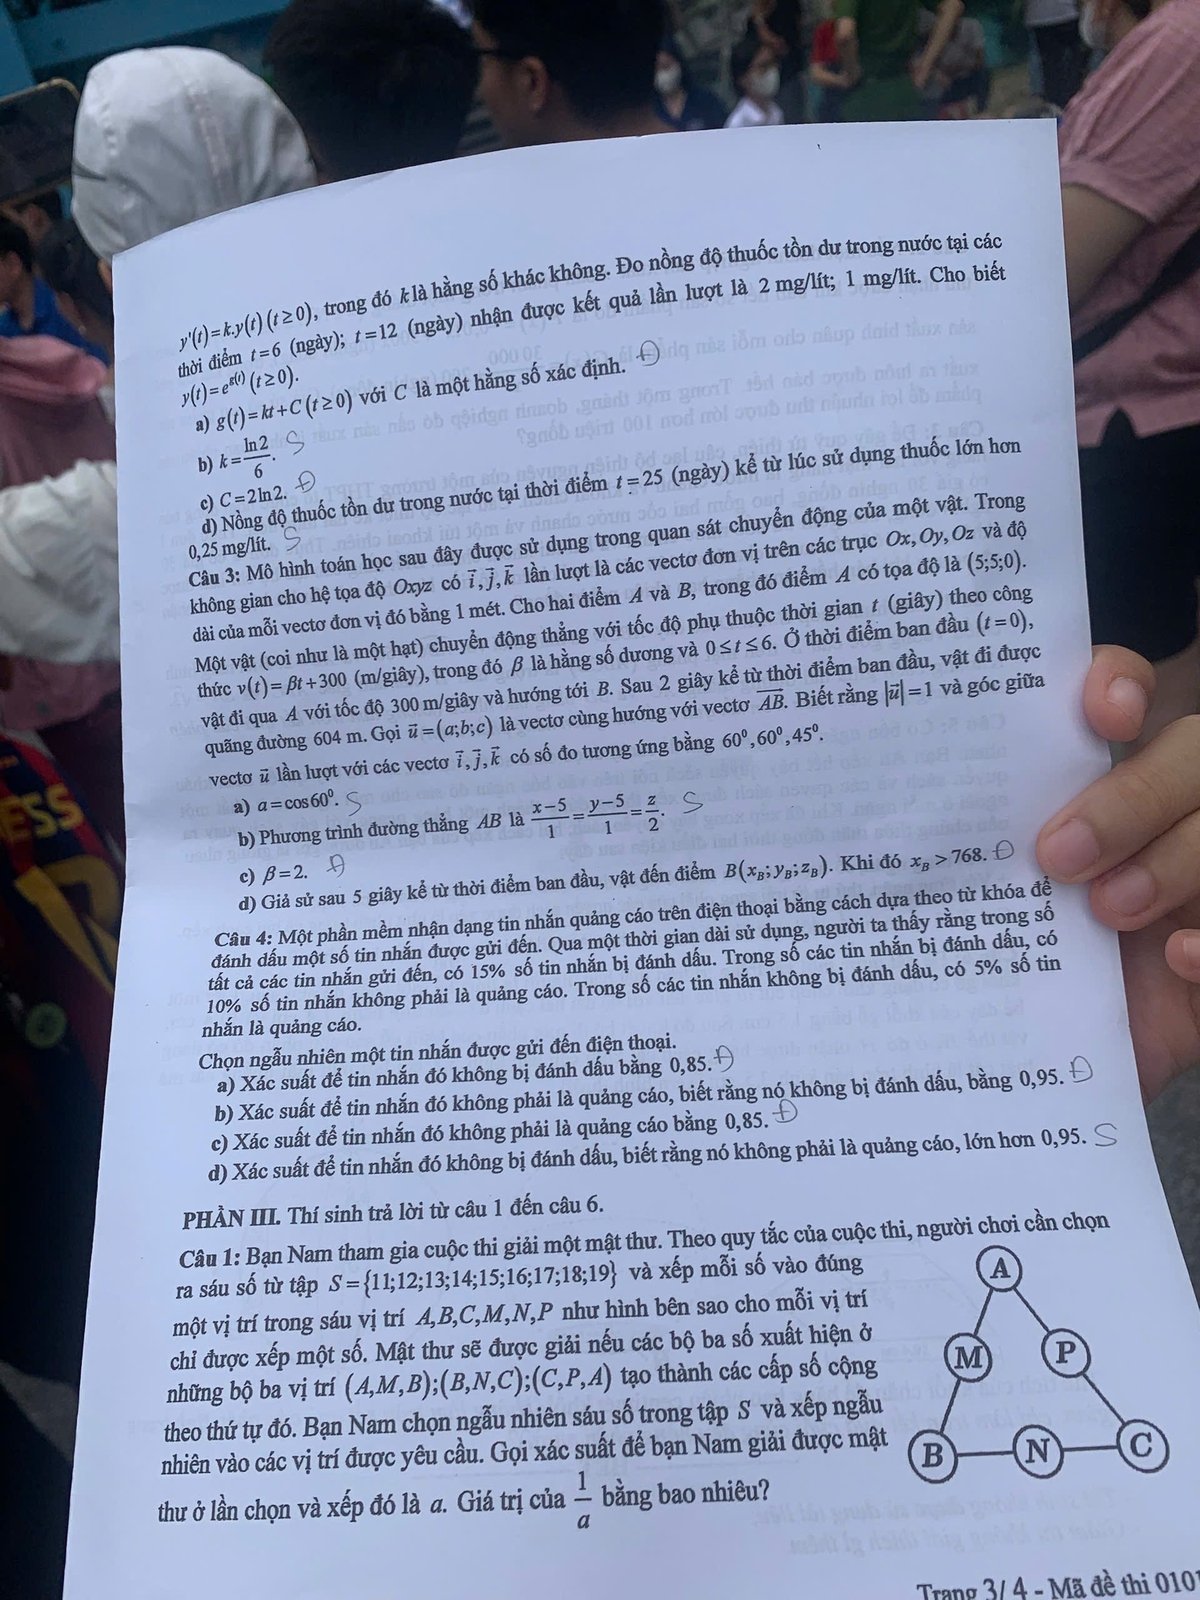 y'(t)=k.y(t) (t≥0), trong đó k là hằng số khác không. Đo nồng độ thuốc tồn dư trong nước tại các
thời điểm t=6 (ngày); t=12 (ngày) nhận được kết quả lần lượt là 2 mg/lít; 1 mg/lít. Cho biết
y(t)=e^{g(t)} (t≥0).
a) g(t)=kt+C (t≥0) với C là một hằng số xác định. Đ
b) k=\frac{ln2}{6}. S
c) C=2ln2. Đ
d) Nồng độ thuốc tồn dư trong nước tại thời điểm t=25 (ngày) kể từ lúc sử dụng thuốc lớn hơn
0,25 mg/lít. S
Câu 3: Mô hình toán học sau đây được sử dụng trong quan sát chuyển động của một vật. Trong
không gian cho hệ tọa độ Oxyz có \vec{i},\vec{j},\vec{k} lần lượt là các vectơ đơn vị trên các trục Ox,Oy,Oz và độ
dài của mỗi vectơ đơn vị đó bằng 1 mét. Cho hai điểm A và B, trong đó điểm A có tọa độ là (5;5;0).
Một vật (coi như là một hạt) chuyển động thẳng với tốc độ phụ thuộc thời gian t (giây) theo công
thức v(t)=βt+300 (m/giây), trong đó β là hằng số dương và 0≤t≤6. Ở thời điểm ban đầu (t=0),
vật đi qua A với tốc độ 300 m/giây và hướng tới B. Sau 2 giây kể từ thời điểm ban đầu, vật đi được
quãng đường 604 m. Gọi \vec{u}=(a;b;c) là vectơ cùng hướng với vectơ \overrightarrow{AB}. Biết rằng |\vec{u}|=1 và góc giữa
vectơ \vec{u} lần lượt với các vectơ \vec{i},\vec{j},\vec{k} có số đo tương ứng bằng 60⁰,60⁰,45⁰.
a) a=cos60⁰. S
b) Phương trình đường thẳng AB là \frac{x-5}{1}=\frac{y-5}{1}=\frac{z}{2}. S
c) β=2. Đ
d) Giả sử sau 5 giây kể từ thời điểm ban đầu, vật đến điểm B(x_B;y_B;z_B). Khi đó x_B>768. Đ
Câu 4: Một phần mềm nhận dạng tin nhắn quảng cáo trên điện thoại bằng cách dựa theo từ khóa để
đánh dấu một số tin nhắn được gửi đến. Qua một thời gian dài sử dụng, người ta thấy rằng trong số
tất cả các tin nhắn gửi đến, có 15% số tin nhắn bị đánh dấu. Trong số các tin nhắn bị đánh dấu, có
10% số tin nhắn không phải là quảng cáo. Trong số các tin nhắn không bị đánh dấu, có 5% số tin
nhắn là quảng cáo.
Chọn ngẫu nhiên một tin nhắn được gửi đến điện thoại.
a) Xác suất để tin nhắn đó không bị đánh dấu bằng 0,85. Đ
b) Xác suất để tin nhắn đó không phải là quảng cáo, biết rằng nó không bị đánh dấu, bằng 0,95. Đ
c) Xác suất để tin nhắn đó không phải là quảng cáo bằng 0,85. Đ
d) Xác suất để tin nhắn đó không bị đánh dấu, biết rằng nó không phải là quảng cáo, lớn hơn 0,95. S
PHẦN III. Thí sinh trả lời từ câu 1 đến câu 6.
Câu 1: Bạn Nam tham gia cuộc thi giải một mật thư. Theo quy tắc của cuộc thi, người chơi cần chọn
ra sáu số từ tập S={11;12;13;14;15;16;17;18;19} và xếp mỗi số vào đúng
một vị trí trong sáu vị trí A,B,C,M,N,P như hình bên sao cho mỗi vị trí
chỉ được xếp một số. Mật thư sẽ được giải nếu các bộ ba số xuất hiện ở
những bộ ba vị trí (A,M,B);(B,N,C);(C,P,A) tạo thành các cấp số cộng
theo thứ tự đó. Bạn Nam chọn ngẫu nhiên sáu số trong tập S và xếp ngẫu
nhiên vào các vị trí được yêu cầu. Gọi xác suất để bạn Nam giải được mật
thư ở lần chọn và xếp đó là a. Giá trị của \frac{1}{a} bằng bao nhiêu?
A
M P
B N C
Trang 3/ 4 - Mã đề thi 0101